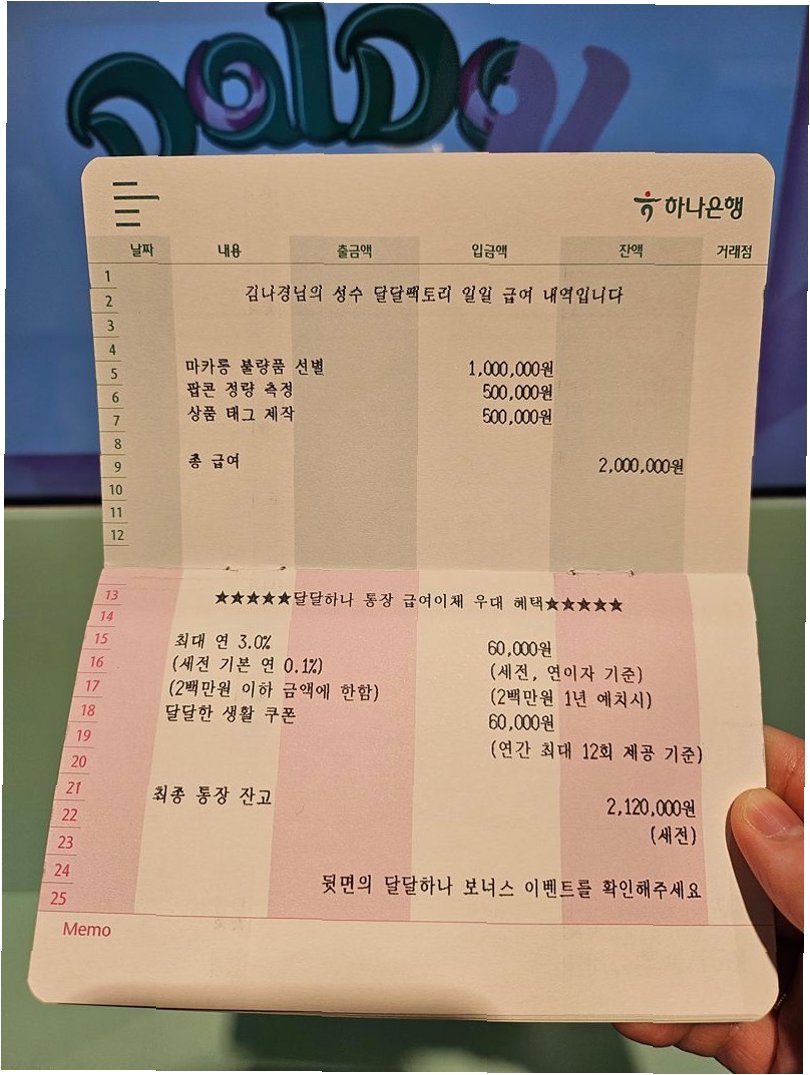 하나은행
날짜 내용 출금액 입금액 잔액 거래점
1
2 김나경님의 성수 달달팩토리 일일 급여 내역입니다
3
4
5 마카롱 불량품 선별 1,000,000원
6 팝콘 정량 측정 500,000원
7 상품 태그 제작 500,000원
8
9 총 급여 2,000,000원
10
11
12
13 ★★★★★달달하나 통장 급여이체 우대 혜택★★★★★
14
15 최대 연 3.0% 60,000원
16 (세전 기본 연 0.1%) (세전, 연이자 기준)
17 (2백만원 이하 금액에 한함) (2백만원 1년 예치시)
18 달달한 생활 쿠폰 60,000원
19 (연간 최대 12회 제공 기준)
20
21 최종 통장 잔고 2,120,000원
22 (세전)
23
24 뒷면의 달달하나 보너스 이벤트를 확인해주세요
25
Memo